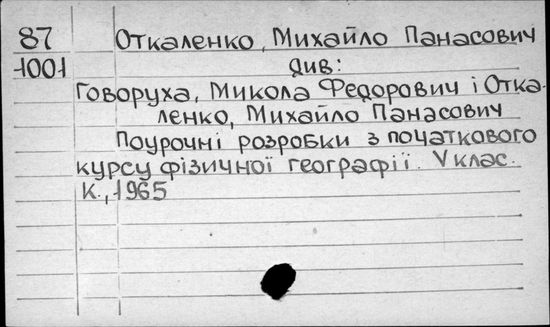 87 Откаленко, Михайло Панасович
1001 див:
Говоруха, Микола Федорович і Отка-
ленко, Михайло Панасович
Поурочні розробки з початкового
курсу фізичної географії. V клас.
К., 1965